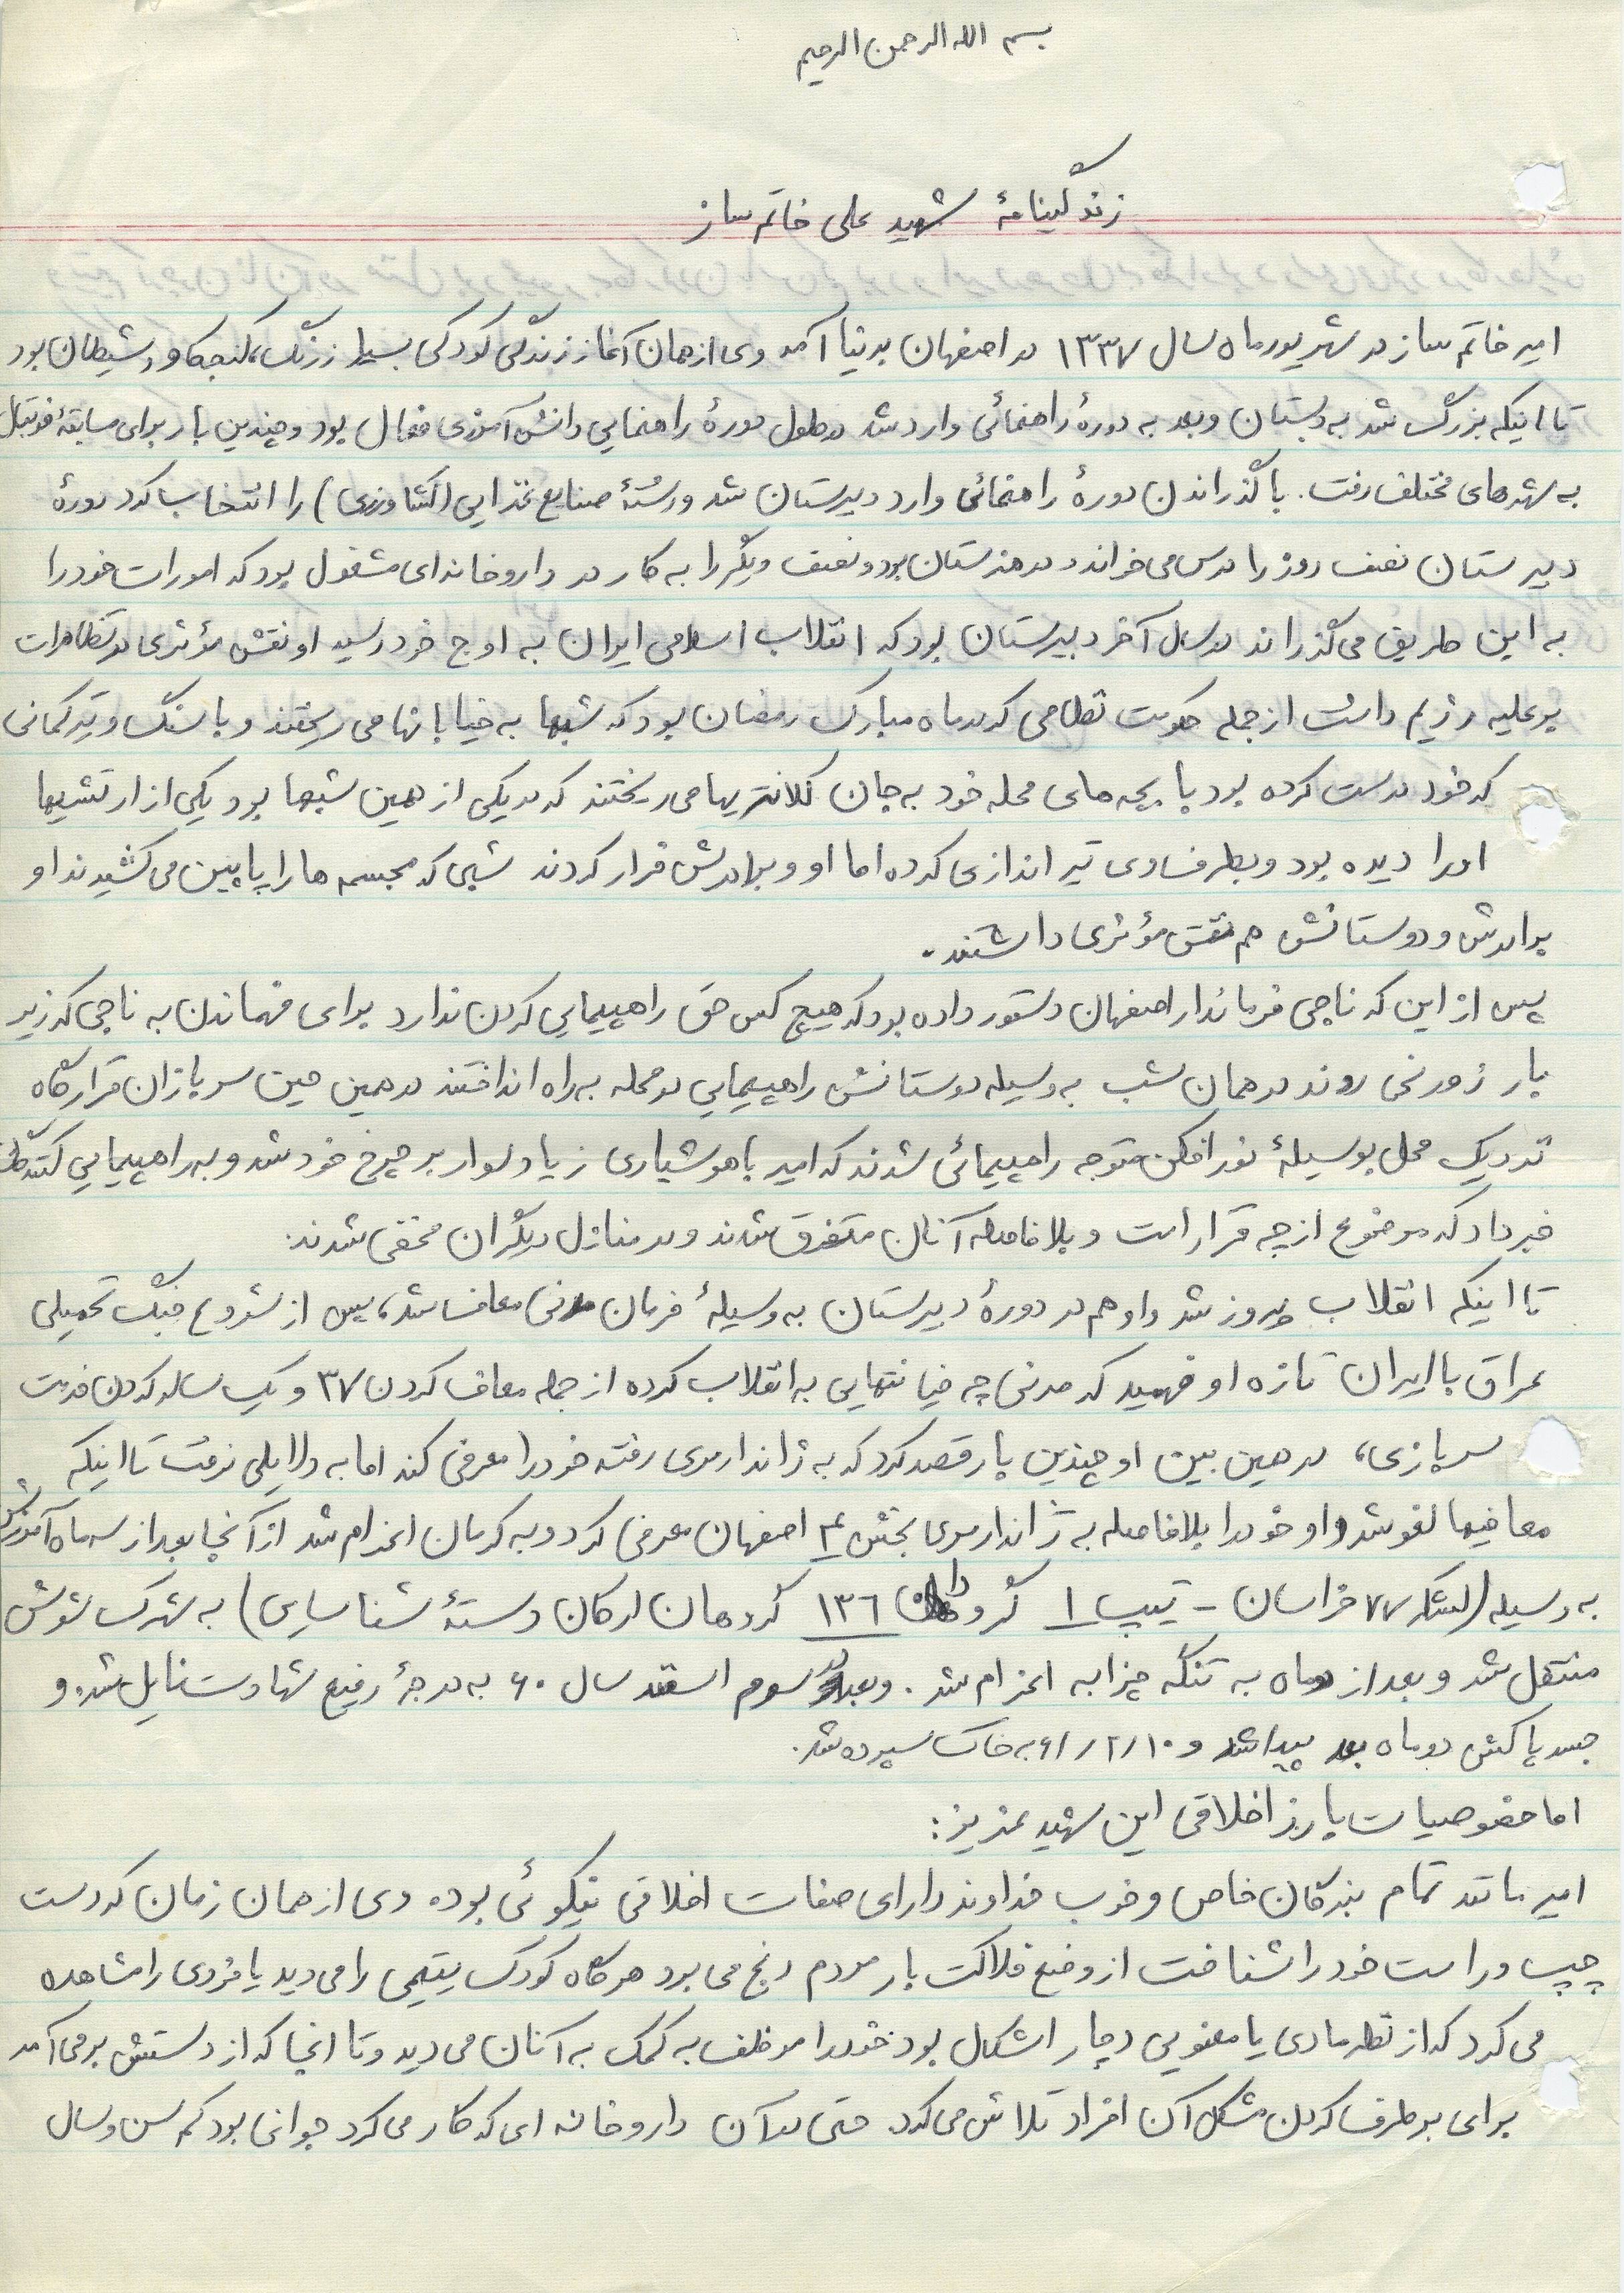 بسم الله الرحمن الرحیم
زندگینامهٔ شهید علی خاتم ساز
امیر خاتم ساز در شهریور ماه سال ۱۳۳۷ در اصفهان بدنیا آمد وی از همان آغاز زندگی کودکی بسیار زرنگ، کنجکاو و شیطان بود
تا اینکه بزرگ شد به دبستان و بعد به دورهٔ راهنمائی وارد شد در طول دورهٔ راهنمایی دانش آموزی فعال بود و چندین بار برای مسابقهٔ فوتبال
به شهرهای مختلف رفت. با گذراندن دورهٔ راهنمائی وارد دبیرستان شد و رستهٔ صنایع غذایی (کشاورزی) را انتخاب کرد دورهٔ
دبیرستان نصف روز را درس می خواند در هنرستان بود و نصف دیگر را به کار در داروخانه ای مشغول بود که امورات خود را
به این طریق می گذراند در سال آخر دبیرستان بود که انقلاب اسلامی ایران به اوج خود رسید او نقش مؤثری در تظاهرات
بر علیه رژیم داشت از جمله حکومت نظامی که در ماه مبارک رمضان بود که شبها به خیابانها می ریختند و با سنگ و تیرکمانی
که خود درست کرده بود با بچه های محله خود به جان کلانتریها می ریختند که در یکی از همین شبها بود یکی از ارتشیها
او را دیده بود و بطرف وی تیر اندازی کرده اما او و برادرش فرار کردند شبی که مجسمه ها را پایین می کشیدند او
برادرش و دوستانش هم نقش مؤثری داشتند.
پس از این که ناجی فرماندار اصفهان دستور داده بود که هیچ کس حق راهپیمایی کردن ندارد برای فهماندن به ناجی که زیر
بار زور نمی روند در همان شب به وسیله دوستانش راهپیمایی در محله به راه انداختند در همین حین سربازان قرارگاه
نزدیک محل بوسیلهٔ نورافکن متوجه راهپیمائی شدند که امیر با هوشیاری زیاد سوار بر چرخ خود شد و به راهپیمایی کنندگان
خبر داد که موضوع از چه قرار است و بلافاصله آنان متفرق شدند و در منازل دیگران مخفی شدند.
تا اینکه انقلاب پیروز شد و او هم در دورهٔ دبیرستان به وسیلهٔ فرمان مدنی معاف شد، پس از شروع جنگ تحمیلی
عراق با ایران تازه او فهمید که مدنی چه خیانتهایی به انقلاب کرده از جمله معاف کردن ۳۷ و یک ساله کردن خدمت
سربازی، در همین بین او چندین بار قصد کرد که به ژاندارمری رفته خود را معرفی کند اما به دلایلی نرفت تا اینکه
معافیها لغو شد و او خود را بلافاصله به ژاندارمری بخش ۴ اصفهان معرفی کرد و به کرمان اعزام شد از آنجا بعد از سه ماه آموزش
به وسیله (لشکر ۷۷ خراسان - تیپ ۱ گردان ۱۳۶ گروهان ارکان دستهٔ شناسایی) به شهرک شوش
منتقل شد و بعد از دو ماه به تنگه چزابه اعزام شد. و در سوم اسفند سال ۶۰ به درجهٔ رفیع شهادت نایل شد. و
جسد پاکش دو ماه بعد پیدا شد و ۶۱/۲/۱۰ به خاک سپرده شد.
اما خصوصیات بارز اخلاقی این شهید عزیز:
امیر مانند تمام بندگان خاص و خوب خداوند دارای صفات اخلاقی نیکوئی بوده وی از همان زمان که دست
چپ و راست خود را شناخت از وضع فلاکت بار مردم رنج می برد هرگاه کودک یتیمی را می دید یا فردی را مشاهده
می کرد که از نظر مادی یا معنویی دچار اشکال بود خود را موظف به کمک به آنان می دید و تا آنجا که از دستش برمی آمد
برای برطرف کردن مشکل آن افراد تلاش می کرد. حتی در آن داروخانه ای که کار می کرد جوانی بود کم سن و سال